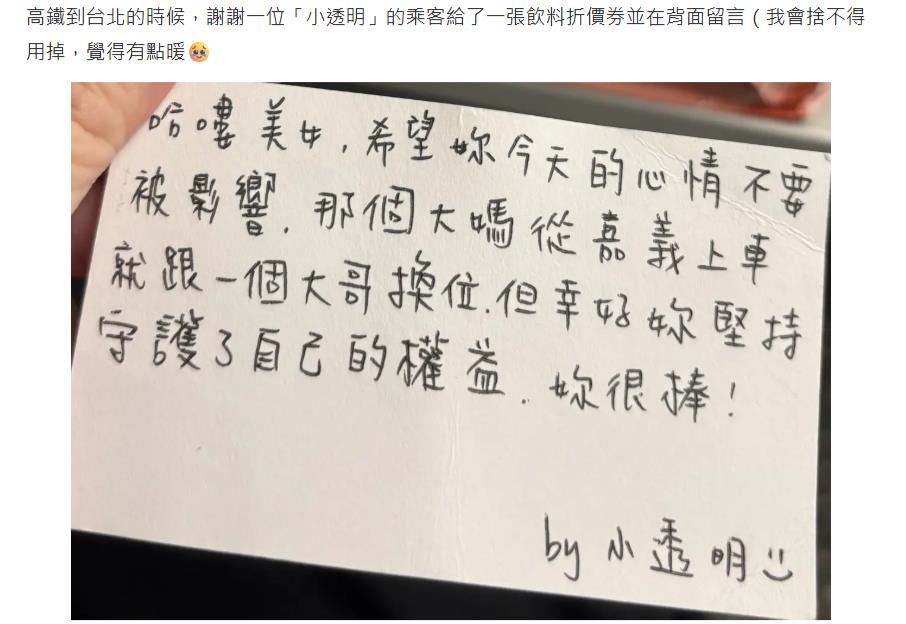 高鐵到台北的時候，謝謝一位「小透明」的乘客給了一張飲料折價券並在背面留言（我會捨不得
用掉，覺得有點暖🥹
哈嘍美女，希望妳今天的心情不要
被影響．那個大媽從嘉義上車
就跟一個大哥換位．但幸好妳堅持
守護了自己的權益．妳很棒！
by 小透明 :)